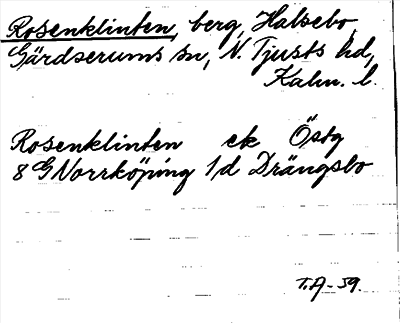 Rosenklinten, berg, Halsebo,
Gärdserums sn, N. Tjusts hd,
Kalm. l.
Rosenklinten ek Östg
8 G Norrköping 1d Drängsbo
T.A-59.